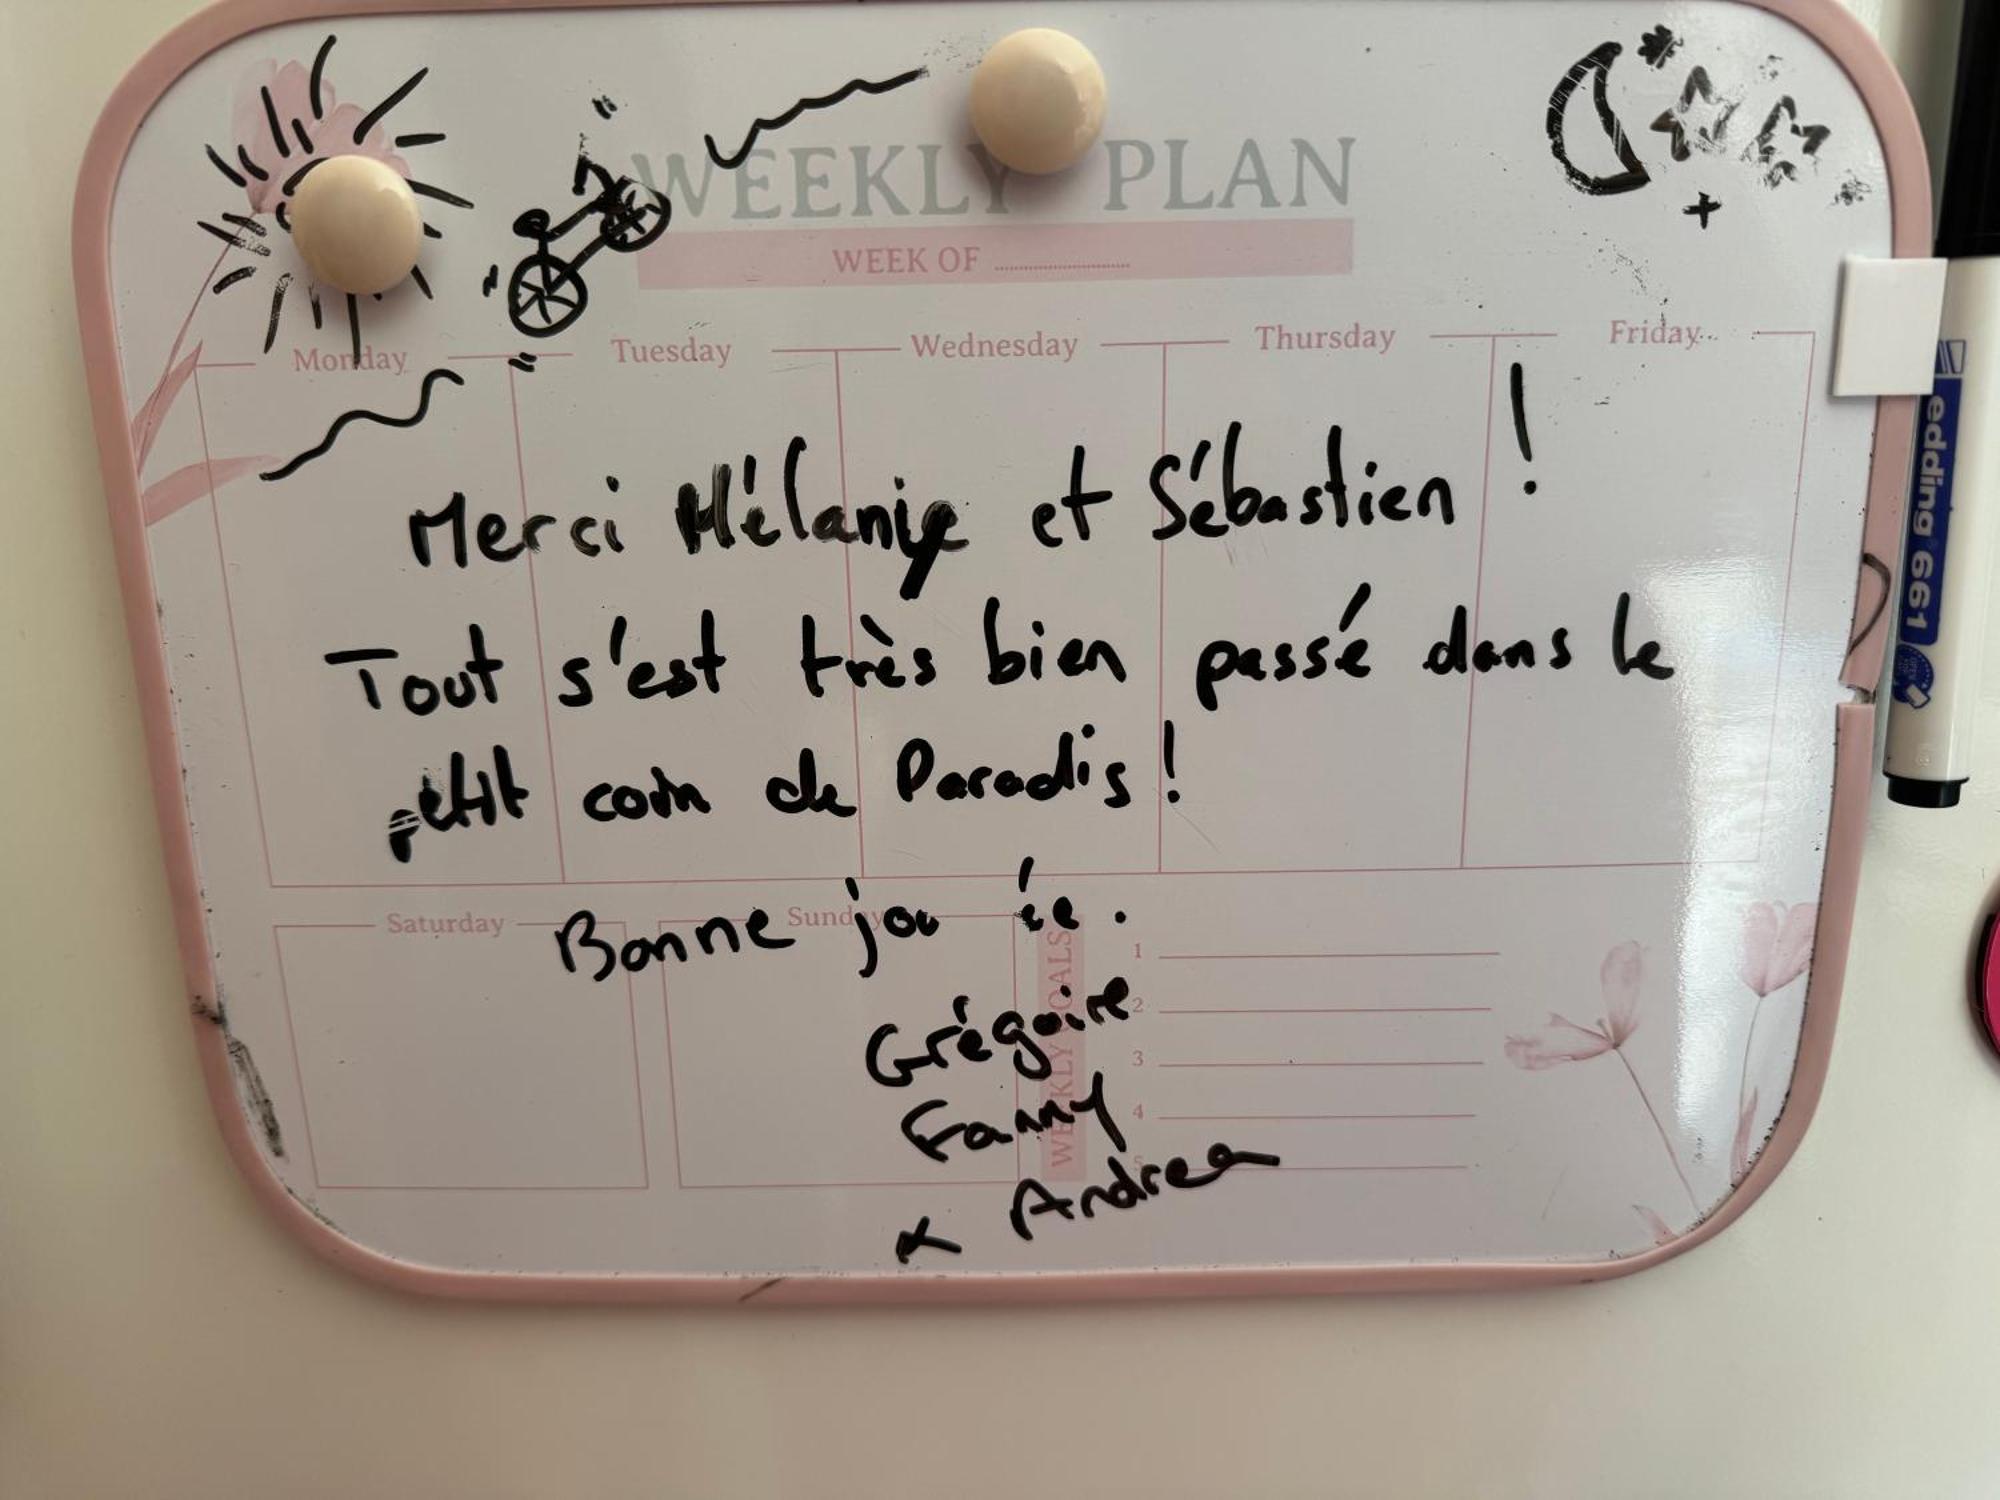 WEEKLY PLAN
WEEK OF
Monday Tuesday Wednesday Thursday Friday
Merci Mélanie et Sébastien !
Tout s'est très bien passé dans le
petit coin de Paradis !
Saturday Sunday
Bonne jou ée.
WEEKLY GOALS
1
2
3
4
5
Grégoire
Fanny
x Andrea
edding 661